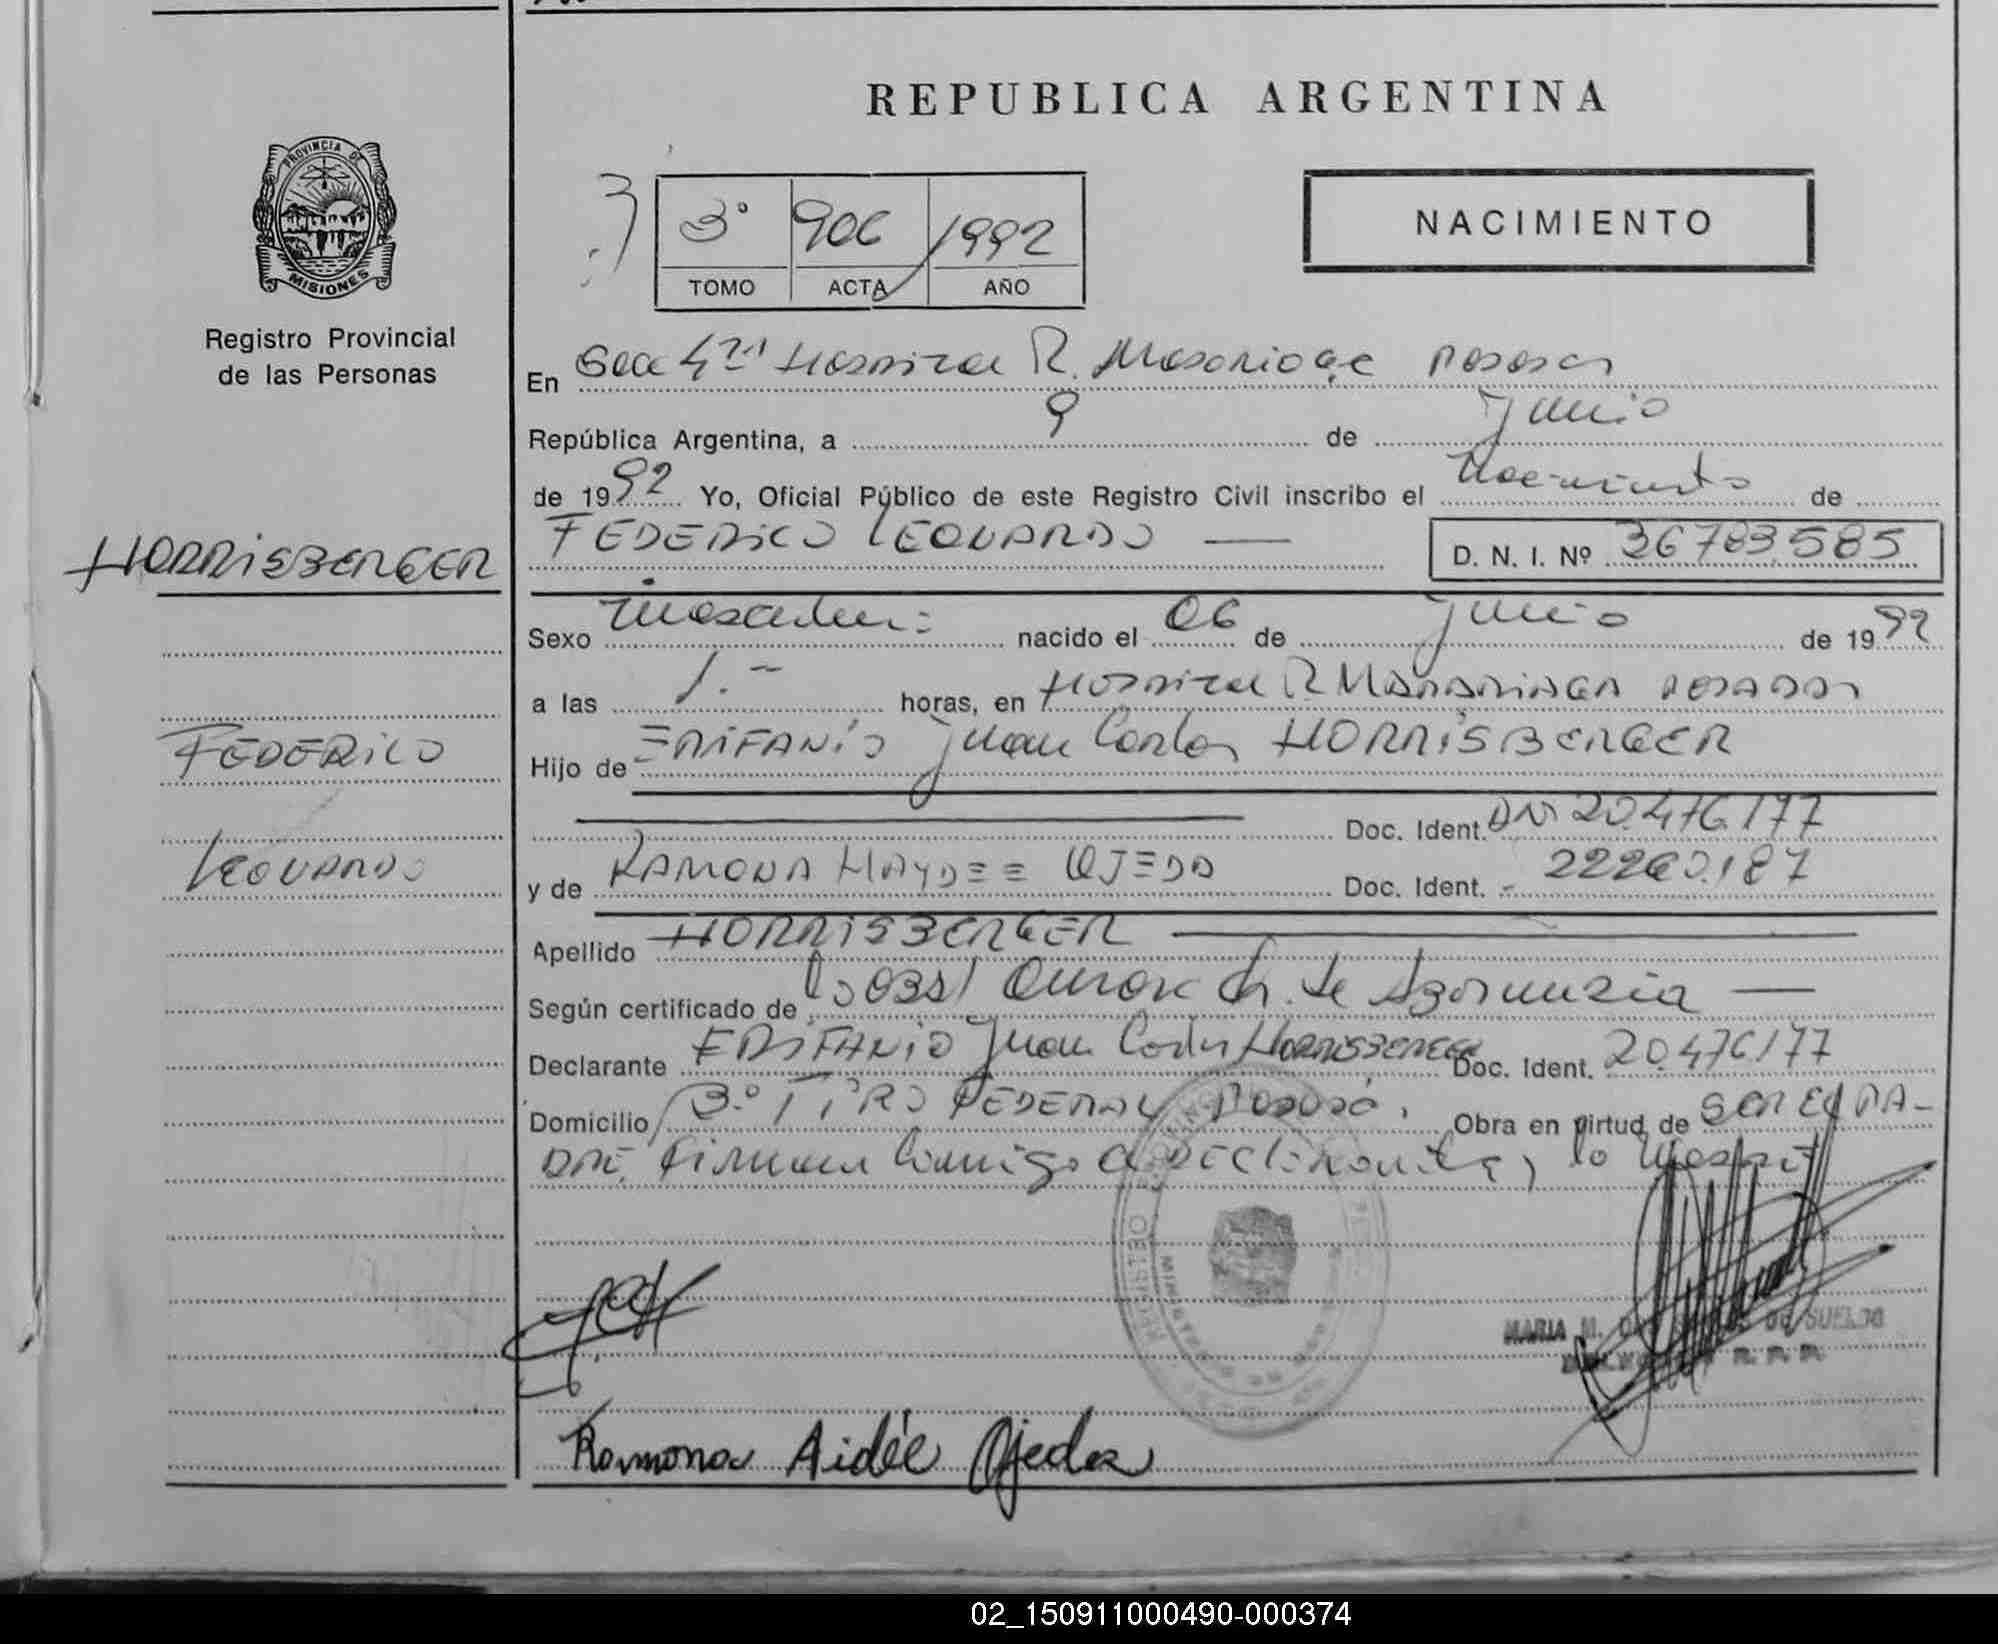 REPUBLICA ARGENTINA
PROVINCIA DE
MISIONES
Registro Provincial
de las Personas
3° 906 1992
TOMO ACTA AÑO
NACIMIENTO
En Secc 4ta Hospital R. Posadas
República Argentina, a 9 de Junio
de 1992 Yo, Oficial Público de este Registro Civil inscribo el Nacimiento de
HORRISBERGER
FEDERICO LEONARDO
D. N. I. Nº 36783585
Sexo masculino nacido el 06 de Junio de 1992
a las 1.- horas, en Hospital R Madariaga Posadas
Hijo de EPIFANIO Juan Carlos HORRISBERGER
Doc. Ident. DNI 20.476.177
y de RAMONA HAYDEE OJEDA Doc. Ident. 22260.187
Apellido HORRISBERGER
Según certificado de
Declarante EPIFANIO Juan Carlos HORRISBERGER Doc. Ident. 20.476177
Domicilio B.° TIRO FEDERAL Obra en virtud de SER EL PA-
DRE, Firman Conmigo el Declarante, la
FEDERICO
LEONARDO
Ramona Aidée Ojeda
MARIA M. DE SUELDO
R. P. P.
02_150911000490-000374